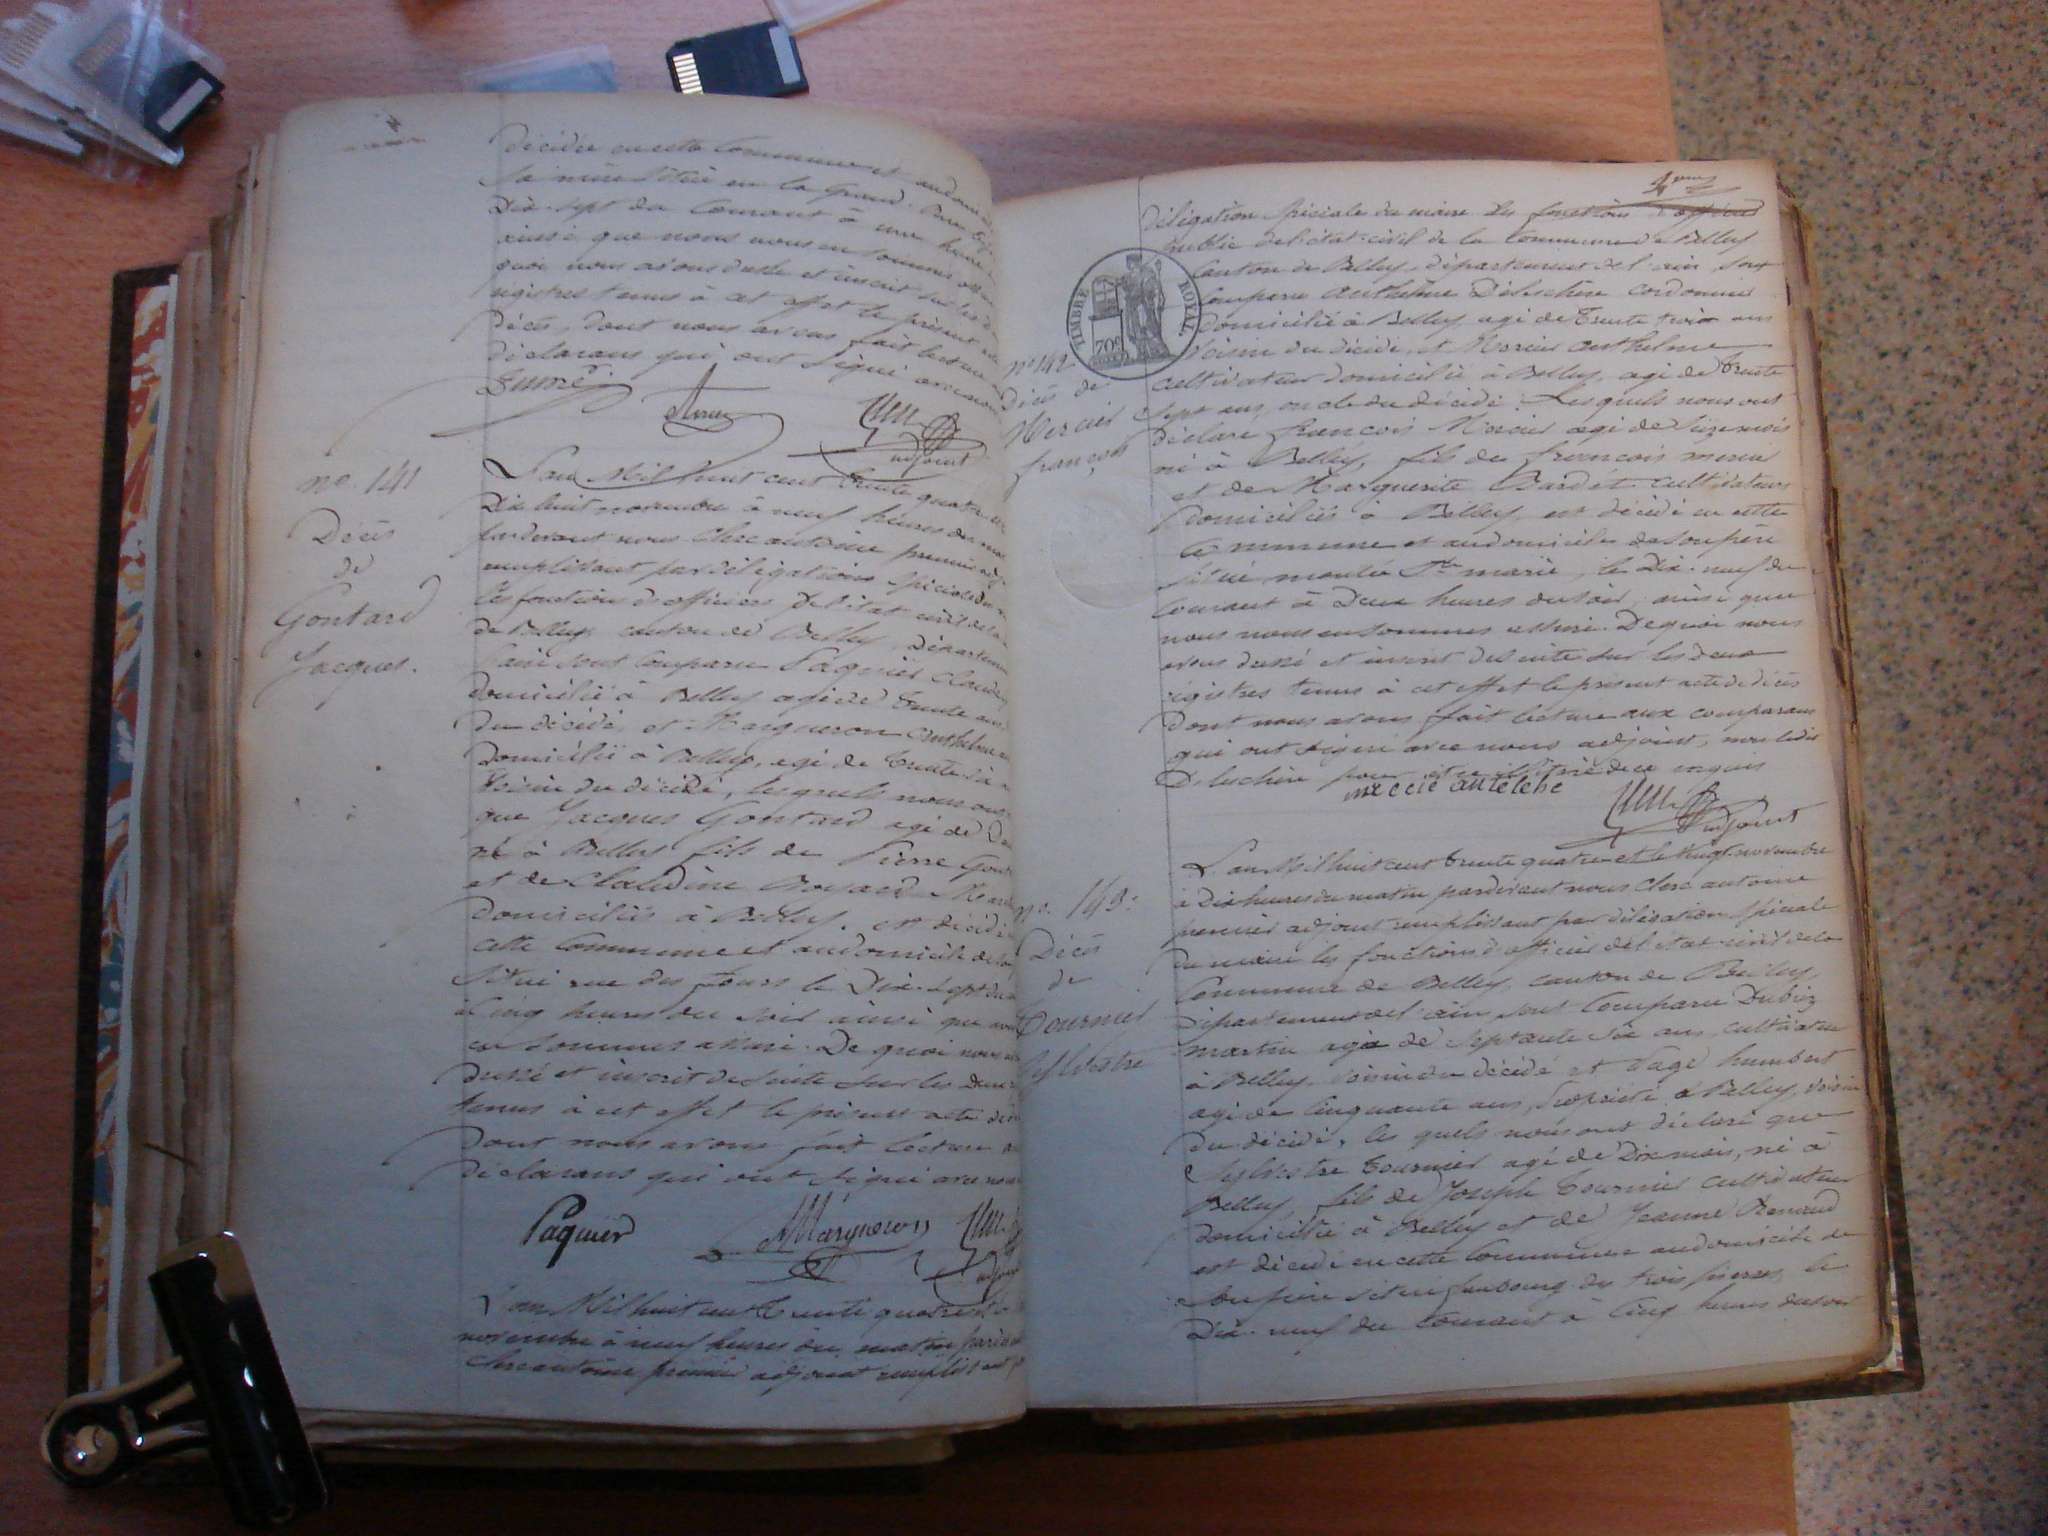 décédée en cette Commune et au dom
sa mère située en la Grand
Dix-sept du Courant à une heure
ainsi que nous nous en sommes
quoi nous avons dressé et inscrit sur les
registres tenus à cet effet le présent
Décès, dont nous avons fait lecture
déclarans qui ont signé avec nous
adjoint
no. 141
Décès
de
Gontard
Jacques.
L'an Mil huit cent trente quatre
Dix huit novembre à neuf heures du mat
pardevant nous Clerc antoine premier adj
remplissant par délégation spéciale du
les fonctions d'officier de l'état civil de la
de Belley, canton de Belley, Département
l'ain sont Comparu Paquier Claude
domicilié à Belley agé de trente ans
du décédé, et Margueron anthelme
domicilié à Belley, agé de trente six
Voisin du décédé, lesquels nous ont
que Jacques Gontard agé de
né à Belley fils de Pierre Gont
et de Claudine Boyard
domiciliés à Belley, est décédé
cette Commune et au domicile de
situé rue des fours le Dix-sept du
à Cinq heures du soir ainsi que nous
en sommes assuré. De quoi nous
dressé et inscrit de suite sur les deux
tenus à cet effet le présent acte de
Dont nous avons fait lecture
déclarans qui ont signé avec nous
Paquier Margueron
adjoint
L'an Mil huit cent trente quatre et
novembre à neuf heures du matin pardev
Clerc antoine premier adjoint remplissant
délégation spéciale du maire les fonctions d'officier
public de l'état-civil de la Commune de Belley
Canton de Belley, département de l'ain, sont
Comparu anthelme Déleschère cordonnier
domicilié à Belley agé de trente trois ans
Voisin du décédé, et Mercier anthelme
TIMBRE ROYAL
70c
no 142
Décès de
Mercier
françois
cultivateur domicilié à Belley, agé de trente
sept ans, oncle du décédé. Lesquels nous ont
déclaré françois Mercier agé de seize mois
né à Belley, fils de françois
et de Marguerite Bardet cultivateurs
domiciliés à Belley, est décédé en cette
Commune et au domicile de son père
situé montée Ste marie, le Dix-neuf du
Courant à Deux heures du soir, ainsi que
nous nous en sommes assuré. De quoi nous
avons dressé et inscrit de suite sur les deux
régistres tenus à cet effet le présent acte de décès
dont nous avons fait lecture aux comparans
qui ont signé avec nous adjoint, non ledit
Deleschère pour être illitéré de ce enquis
adjoint
no. 143.
Décès
de
Tournier
Sylvestre
L'an Mil huit cent trente quatre et le vingt novembre
à dix heures du matin pardevant nous Clerc antoine
premier adjoint remplissant par délégation spéciale
du maire les fonctions d'officier de l'état civil de la
Commune de Belley, canton de Belley,
Département de l'ain, sont Comparu Dubiez
martin agé de septante six ans, cultivateur
à Belley, voisin du décédé et Sage humbert
agé de Cinquante ans, à Belley, voisin
du décédé, les quels nous ont déclaré que
Sylvestre Tournier agé de Dix mois, né à
Belley, fils de Joseph Tournier cultivateur
domicilié à Belley et de Jeanne Renaud
est décédé en cette Commune au domicile de
son père situé faubourg des trois pierres, le
Dix-neuf du courant à Cinq heures du soir